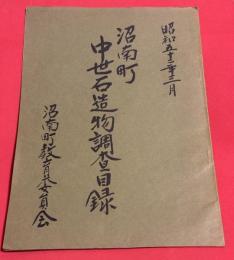 昭和五十三年三月
沼南町
中世石造物調査目録
沼南町教育委員会